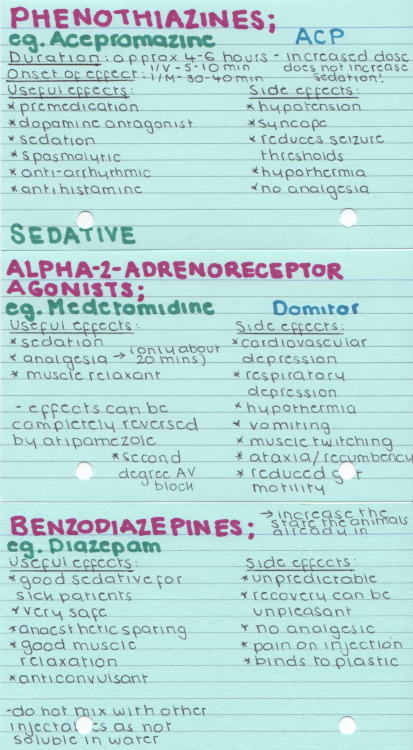 PHENOTHIAZINES;
eg. Acepromazine ACP
Duration: approx 4-6 hours - increased dose does not increase sedation!
Onset of effect: I/V - 5-10 min
I/M - 30-40 min
Useful effects:
* premedication
* dopamine antagonist
* sedation
* spasmolytic
* anti-arrhythmic
* antihistamine
Side effects:
* hypotension
* syncope
* reduces seizure
thresholds
* hypothermia
* no analgesia
SEDATIVE
ALPHA-2-ADRENORECEPTOR
AGONISTS;
eg. Medetomidine Domitor
Useful effects:
* sedation
* analgesia → (only about 20 mins)
* muscle relaxant
- effects can be
completely reversed
by atipamezole
* second
degree AV
block
Side effects:
* cardiovascular
depression
* respiratory
depression
* hypothermia
* vomiting
* muscle twitching
* ataxia/recumbency
* reduced gut
motility
BENZODIAZEPINES; → increase the
state the animals
already in
eg. Diazepam
Useful effects:
* good sedative for
sick patients
* very safe
* anaesthetic sparing
* good muscle
relaxation
* anticonvulsant
-do not mix with other
injectables as not
soluble in water
Side effects:
* unpredictable
* recovery can be
unpleasant
* no analgesic
* pain on injection
* binds to plastic